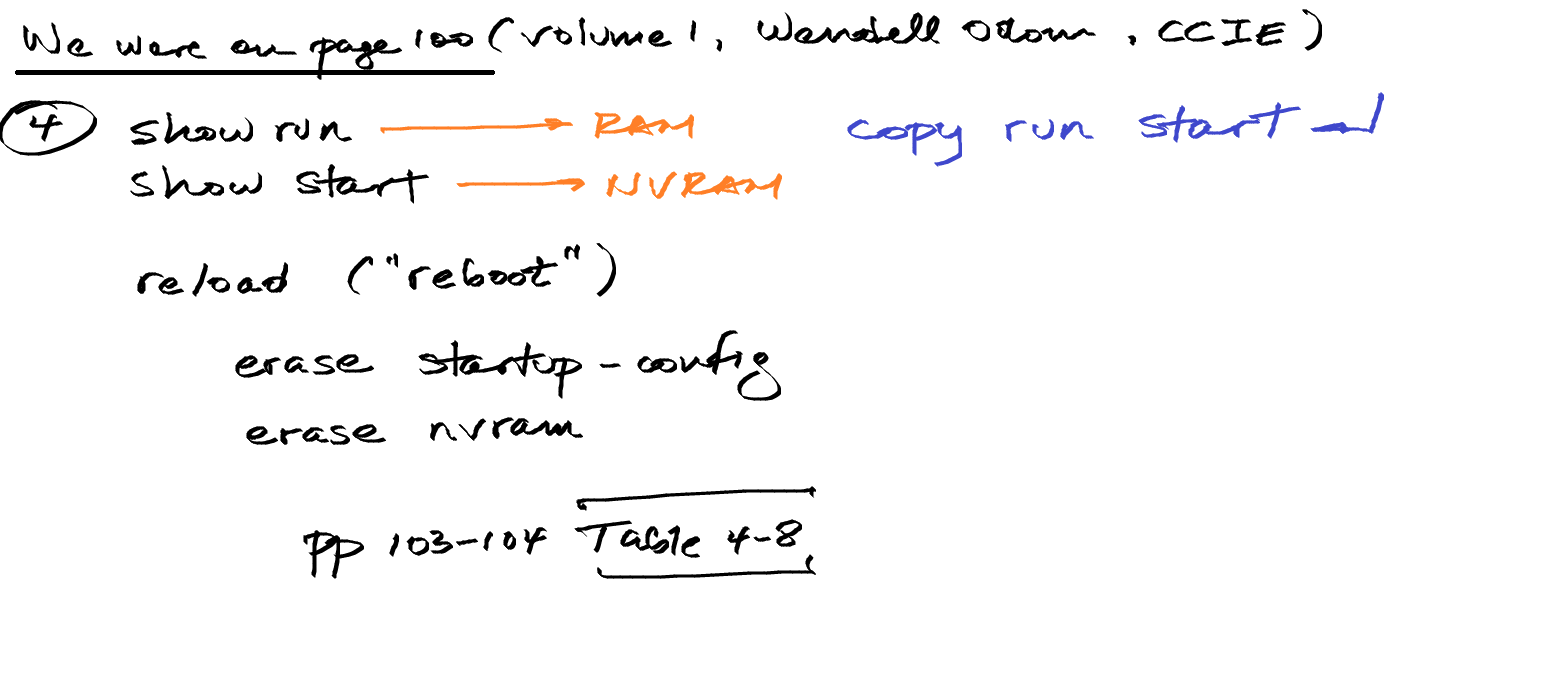 We were on page 100 (volume 1, Wendell Odom, CCIE)
4 show run → RAM copy run start ↵
show start → NVRAM
reload ("reboot")
erase startup-config
erase nvram
pp 103-104 Table 4-8